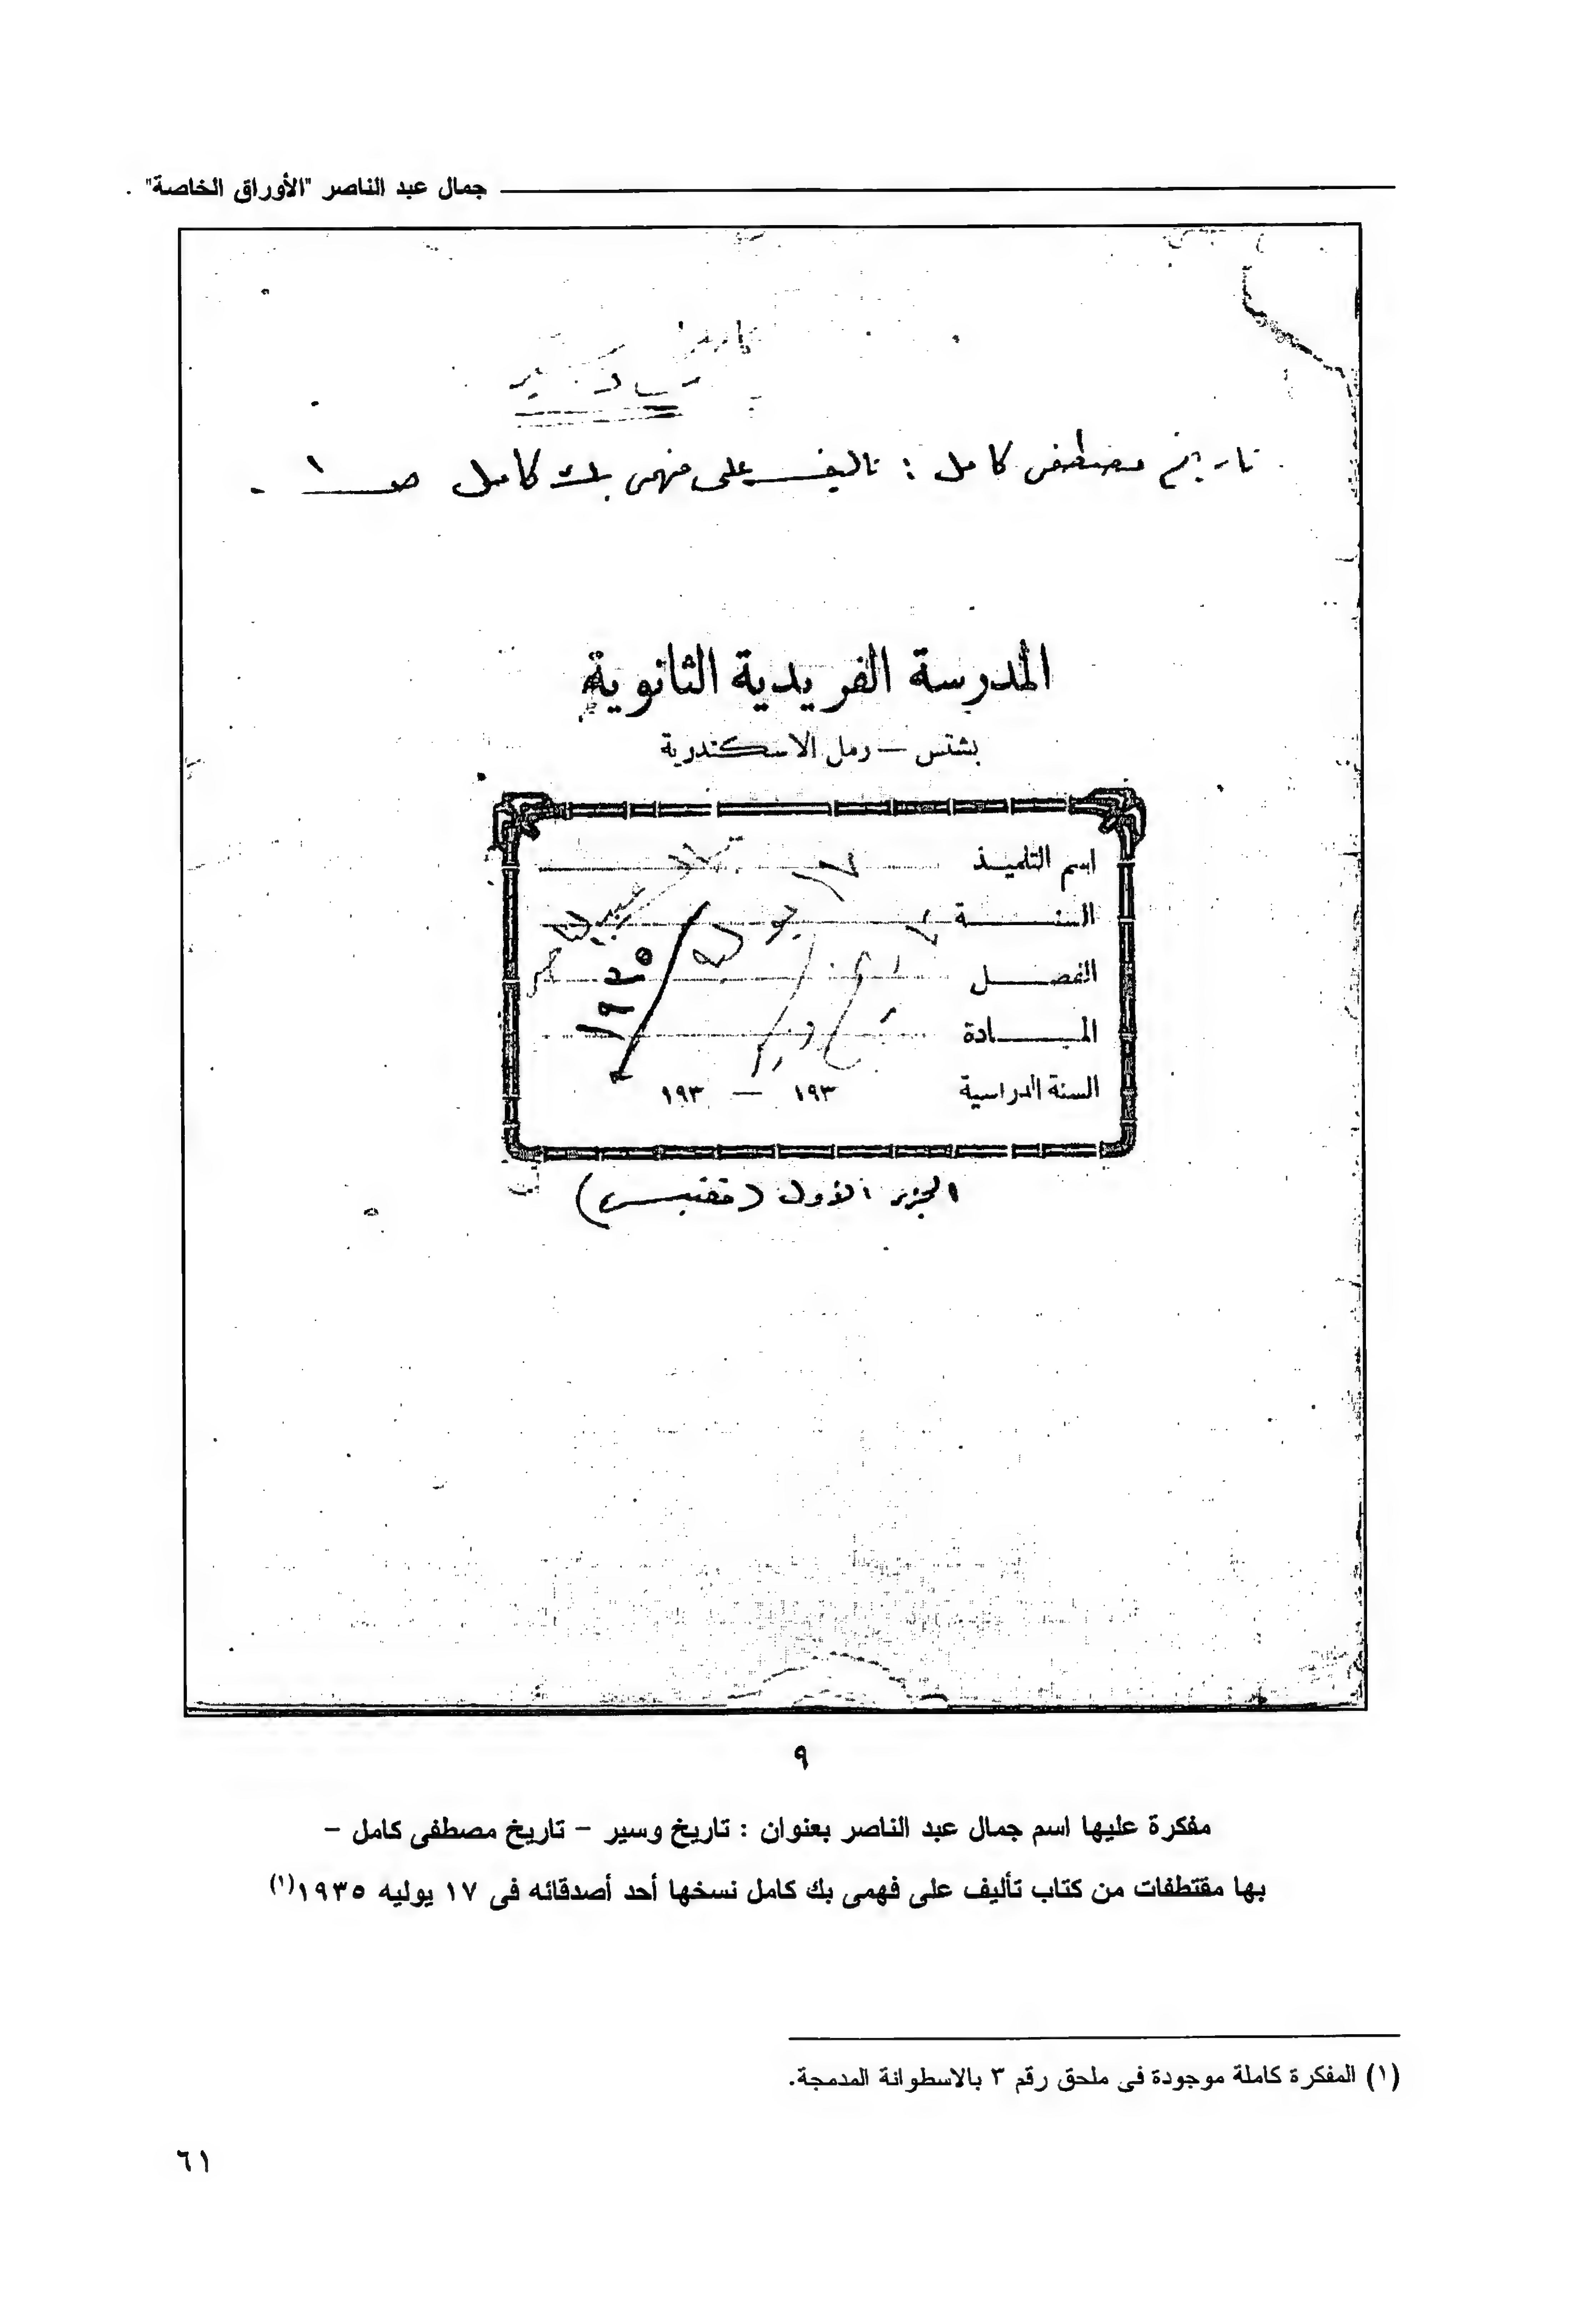 جمال عبد الناصر "الأوراق الخاصة" .
تاريخ
وسير
تاريخ مصطفى كامل : تأليف على فهمى بك كامل ص ١ .
المدرسة الفريدية الثانوية
بشتس — رمل الاسكندرية
اسم التلميذ
السنة
الفصل
المادة
السنة الدراسية ١٩٣ — ١٩٣
١٩٣٥
الجزء الأول (مقتبس)
٩
مفكرة عليها اسم جمال عبد الناصر بعنوان : تاريخ وسير – تاريخ مصطفى كامل –
بها مقتطفات من كتاب تأليف على فهمى بك كامل نسخها أحد أصدقائه فى ١٧ يوليه ١٩٣٥(١)
(١) المفكرة كاملة موجودة فى ملحق رقم ٣ بالاسطوانة المدمجة.
٦١